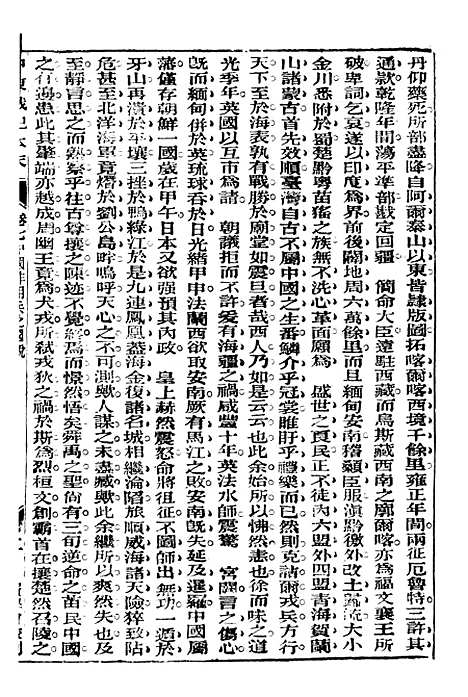 丹仰藥死所部盡降自阿爾泰山以東皆隸版圖拓喀爾喀西境千餘里雍正年間兩征厄魯特三許其
通款乾隆年間蕩平準部戡定回疆　簡命大臣遠駐西藏而烏斯藏西南之廓爾喀亦爲福文襄王所
破卑詞乞哀遂以印度爲界前後闢地周六萬餘里而且緬甸安南稽顙臣服滇黔徼外改土歸流大小
金川悉附於蜀楚黔粵苗猺之族無不洗心革面願爲　盛世之良民正不徒內六盟外四盟青海賀蘭
山諸蒙古首先效順臺灣自古不屬中國之生番鱗介乎冠裳睢盱乎禮樂而已然則克詰爾戎兵方行
天下至於海表孰有戰勝於廟堂如震旦者哉西人乃如是云云也此余始所以怫然恚也徐而味之道
光季年英國以互市爲請　朝議拒而不許爰有海疆之禍咸豐十年英法水師震驚　宮闕言之傷心
旣而緬甸併於英琉球吞於日光緒甲申法蘭西欲取安南厥有馬江之敗安南旣失延及暹羅中國屬
藩僅存朝鮮一國歲在甲午日本又欲强預其內政　皇上赫然震怒命將徂征不圖師出無功一遁於
牙山再潰於平壤三挫於鴨綠江於是九連鳳凰蓋海金復諸名城相繼淪陷旅順威海諸天險猝致阽
危甚至北洋海軍竟熸於劉公島吁嗚呼天心之不可測歟人謀之未盡臧歟此余繼所以爽然失也及
至靜言思之而熟察乎往古尊攘之陳迹不覺終焉而憬然悟矣舜禹之聖尚有三旬逆命之苗民中國
之有邊患此其肇端亦越成周幽王竟爲犬戎所弒戎狄之禍於斯爲烈桓文創霸首在攘楚然召陵之